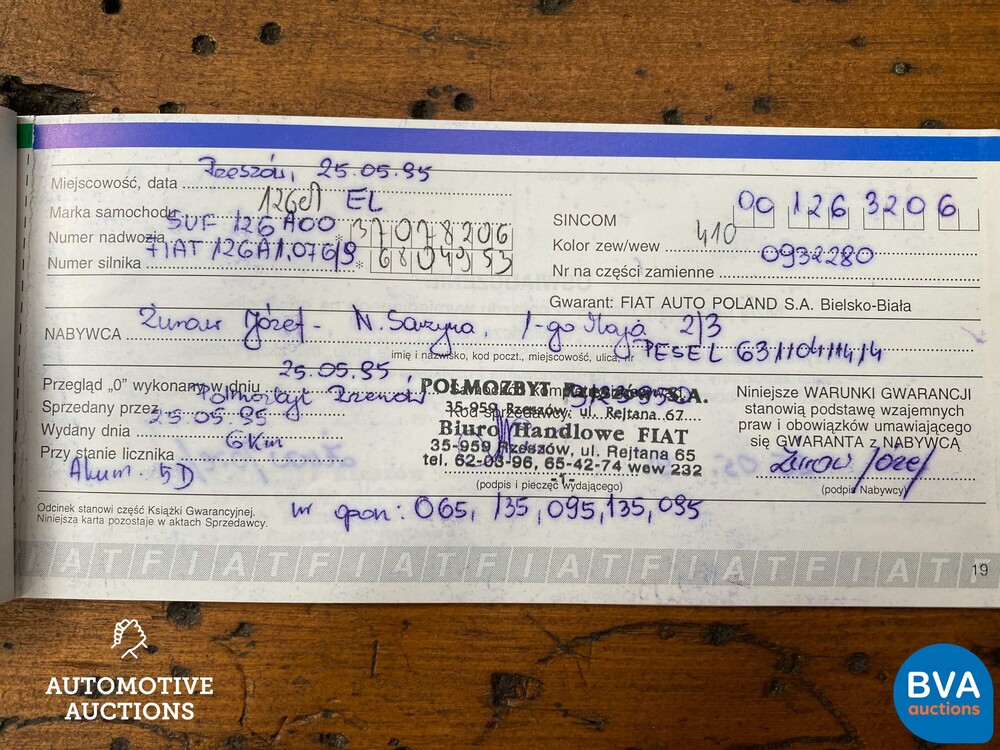 Miejscowość, data Rzeszów, 25.05.95
Marka samochodu 126el EL
Numer nadwozia SUF 126A00 * 37078206
Numer silnika FIAT 126A1.076/9 * 6804953
SINCOM 00 126 3206
Kolor zew/wew 410
Nr na części zamienne 0932280
Gwarant: FIAT AUTO POLAND S.A. Bielsko-Biała
NABYWCA Żuraw Józef - N. Sarzyna, 1-go Maja 2/3
imię i nazwisko, kod poczt., miejscowość, ulica, nr PESEL 63110411414
Przegląd „0” wykonany w dniu 25.05.95
Sprzedany przez Polmozbyt Rzeszów
Wydany dnia 25.05.95
Przy stanie licznika 6Km
Akum. 5D
POLMOZBYT Rzeszów S.A.
35-959 Rzeszów, ul. Rejtana 67
Biuro Handlowe FIAT
35-959 Rzeszów, ul. Rejtana 65
tel. 62-03-96, 65-42-74 wew 232
-1-
(podpis i pieczęć wydającego)
Niniejsze WARUNKI GWARANCJI
stanowią podstawę wzajemnych
praw i obowiązków umawiającego
się GWARANTA z NABYWCĄ
Żuraw Józef
(podpis Nabywcy)
Odcinek stanowi część Książki Gwarancyjnej.
Niniejsza karta pozostaje w aktach Sprzedawcy.
nr opon: 065, 135, 095, 135, 095
IATFIATFIATFIATFIATFIATFIATF
19
AUTOMOTIVE
AUCTIONS
BVA
auctions